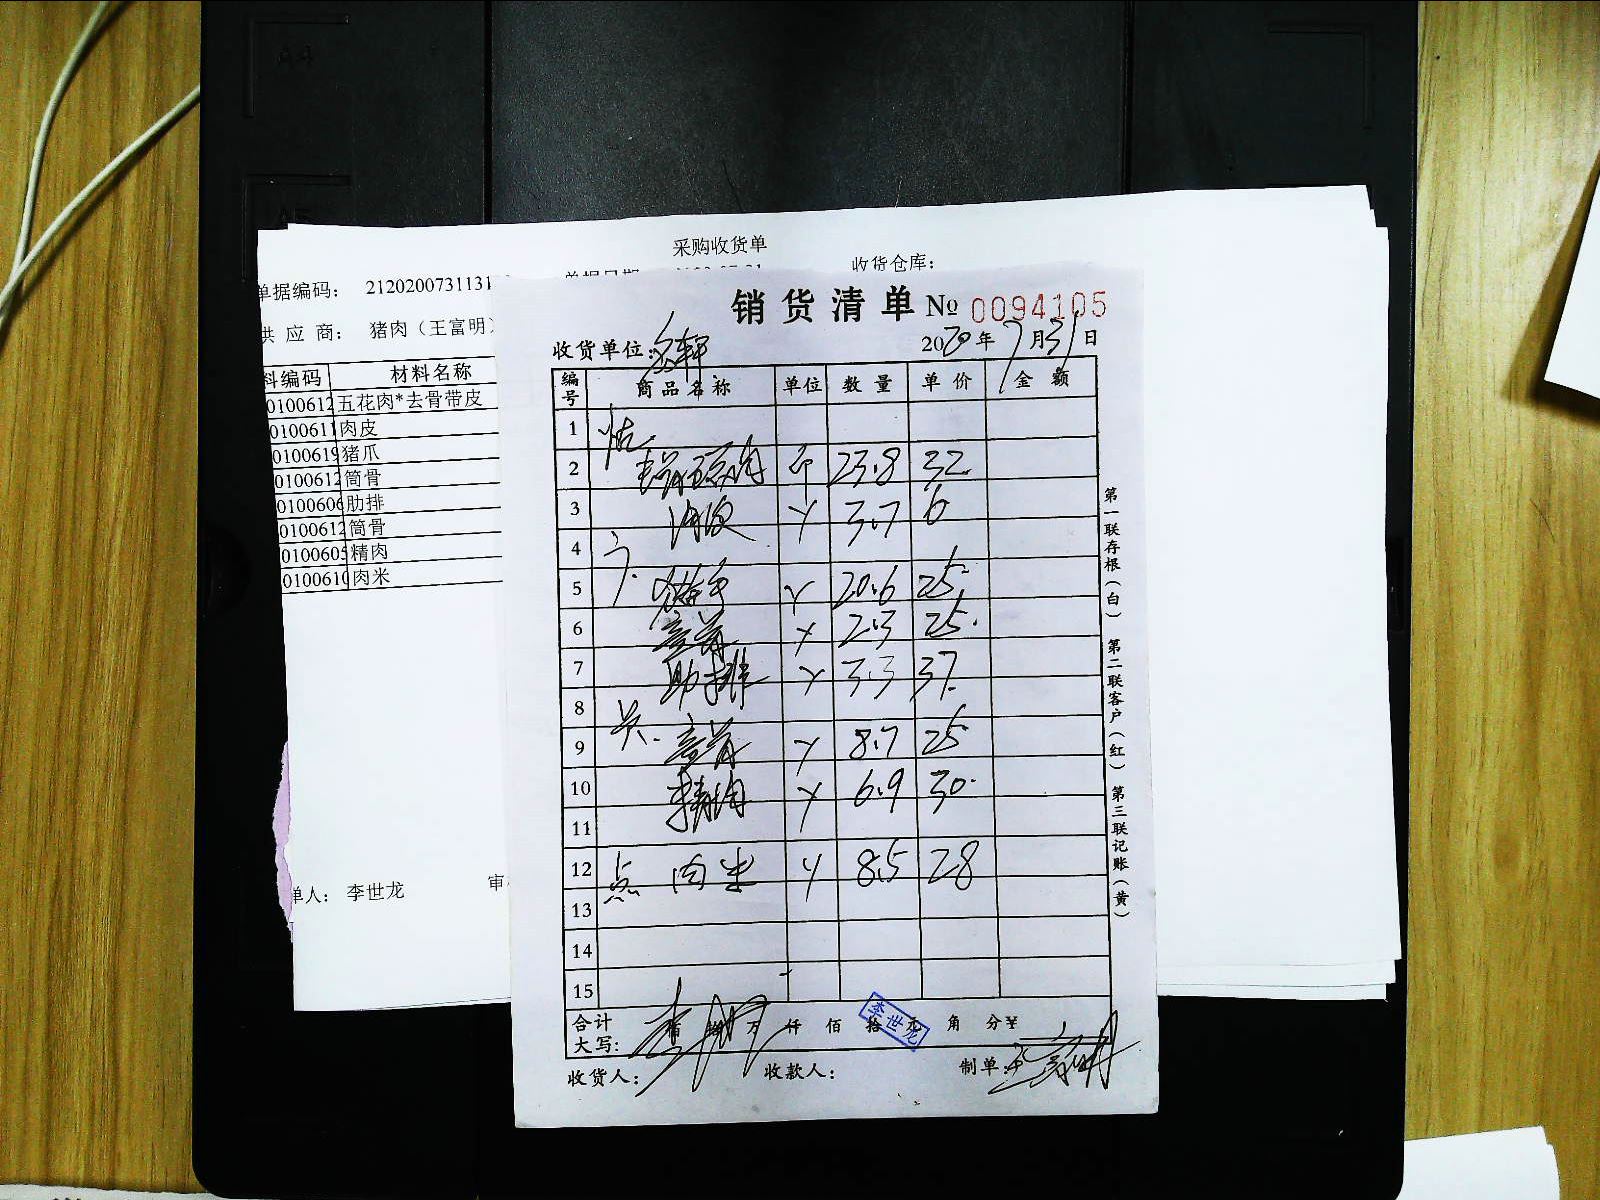 采购收货单
单据编码： 2120200731131
单据日期
收货仓库：
供 应 商： 猪肉（王富明）
料编码 材料名称
0100612 五花肉*去骨带皮
0100611 肉皮
0100619 猪爪
0100612 筒骨
0100606 肋排
0100612 筒骨
0100605 精肉
0100610 肉米
单人： 李世龙 审
销货清单 № 0094105
收货单位： 2020年7月31日
编号 商品名称 单位 数量 单价 金额
1
2 五花肉 斤 23.8 32
3 肉皮 〃 3.7 6
4
5 猪手 〃 20.6 25
6 筒骨 〃 2.3 25
7 肋排 〃 3.3 37
8
9 筒骨 〃 8.7 25
10 精肉 〃 6.9 30
11
12 点 肉米 〃 8.5 28
13
14
15
合计大写： 佰 拾 万 仟 佰 拾 元 角 分 ¥
李世龙
收货人： 收款人： 制单：王富明
第一联存根（白） 第二联客户（红） 第三联记账（黄）
A4